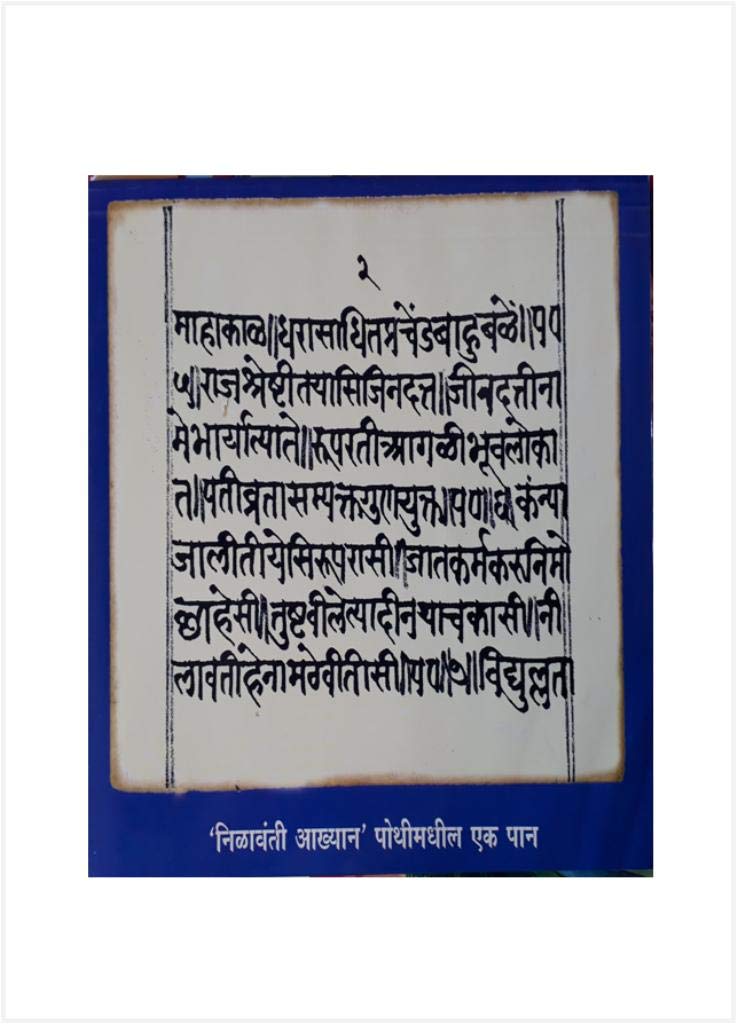 २
माहाकाळ॥धरासाधितप्रचंडबाहुबळें॥५०
५॥राजश्रेष्टीतयासिजिनदत्त॥जीवदत्तीना
मेभार्यात्यातें॥रूपरतीआगळीभूवलोका
त॥पतीव्रतासम्यक्तगुणयुक्त॥५०॥६॥कंन्या
जालीतीयेसिरूपरासी॥जातकर्मकरुनिमो
छाहेसी॥तुष्टवीलेत्यादीनयाचकासी॥नी
लावतीहेनामठेवीतीसी॥५०॥७॥विद्युल्लता
'निळावंती आख्यान' पोथीमधील एक पान